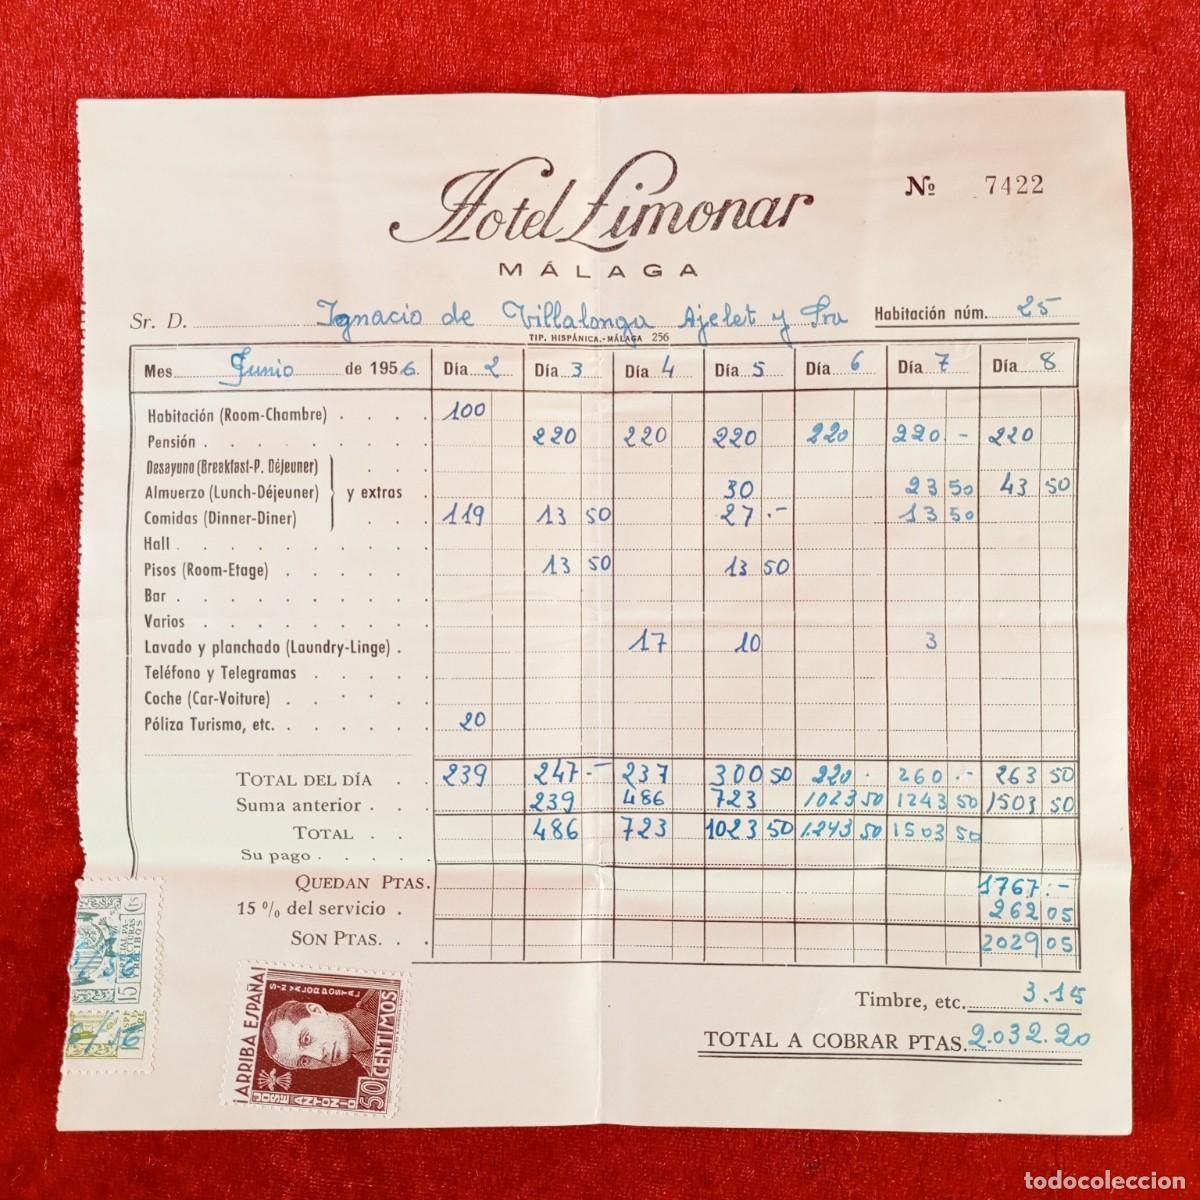 Hotel Limonar
Nº 7422
MÁLAGA
Sr. D. Ignacio de Villalonga Ajelet y Sra Habitación núm. 25
TIP. HISPÁNICA.-MÁLAGA 256
Mes Junio de 1956. Día 2 Día 3 Día 4 Día 5 Día 6 Día 7 Día 8
Habitación (Room-Chambre) 100
Pensión 220 220 220 220 220 - 220
Desayuno (Breakfast-P. Déjeuner)
Almuerzo (Lunch-Déjeuner) y extras 30 23 50 43 50
Comidas (Dinner-Diner) 119 13 50 27 .- 13 50
Hall
Pisos (Room-Etage) 13 50 13 50
Bar
Varios
Lavado y planchado (Laundry-Linge) 17 10 3
Teléfono y Telegramas
Coche (Car-Voiture)
Póliza Turismo, etc. 20
TOTAL DEL DÍA 239 247.- 237 300 50 220. 260.- 263 50
Suma anterior 239 486 723 1023 50 1243 50 1503 50
TOTAL 486 723 1023 50 1.243 50 1503 50
Su pago
QUEDAN PTAS. 1767.-
15 % del servicio 262 05
SON PTAS. 2029 05
Timbre, etc. 3.15
TOTAL A COBRAR PTAS. 2.032.20
¡ARRIBA ESPAÑA!
SIN VALOR POSTAL
JOSE ANTONIO
50 CENTIMOS
15 Cts
todocoleccion